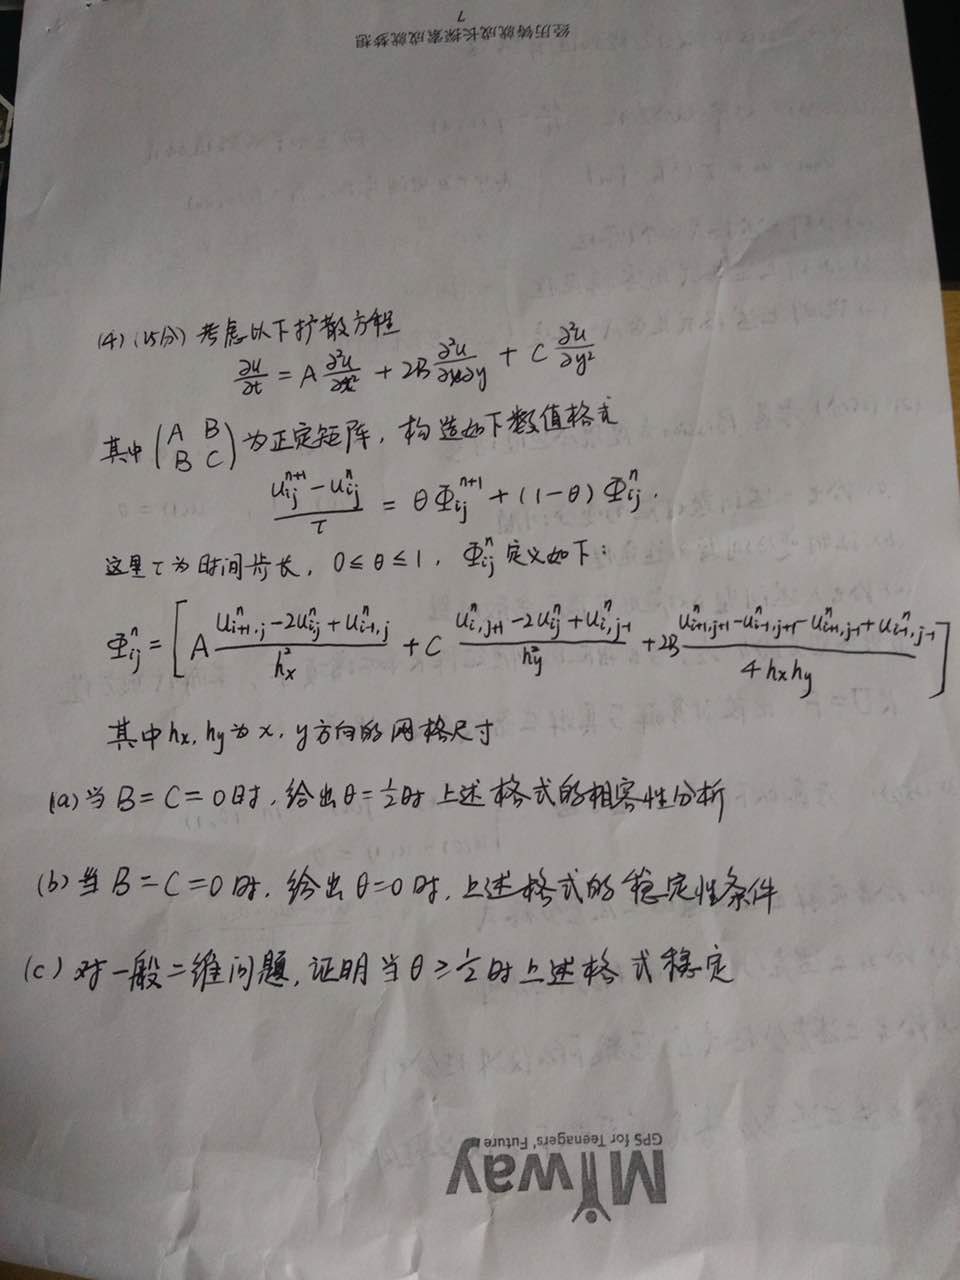 经历铸就成长探索成就梦想
7
(4) (15分) 考虑以下扩散方程
∂u/∂t = A ∂²u/∂x² + 2B ∂²u/∂x∂y + C ∂²u/∂y²
其中 (A B; B C) 为正定矩阵, 构造如下数值格式
(u_{ij}^{n+1} - u_{ij}^{n})/τ = θ Φ_{ij}^{n+1} + (1-θ) Φ_{ij}^{n}.
这里 τ 为时间步长, 0 ≤ θ ≤ 1, Φ_{ij}^{n} 定义如下:
Φ_{ij}^{n} = [A (u_{i+1,j}^{n} - 2u_{ij}^{n} + u_{i-1,j}^{n})/h_x^2 + C (u_{i,j+1}^{n} - 2u_{ij}^{n} + u_{i,j-1}^{n})/h_y^2 + 2B (u_{i+1,j+1}^{n} - u_{i-1,j+1}^{n} - u_{i+1,j-1}^{n} + u_{i-1,j-1}^{n})/(4 h_x h_y)]
其中 h_x, h_y 为 x, y 方向的网格尺寸
(a) 当 B = C = 0 时, 给出 θ = 1/2 时上述格式的相容性分析
(b) 当 B = C = 0 时, 给出 θ = 0 时, 上述格式的稳定性条件
(c) 对一般二维问题, 证明当 θ ≥ 1/2 时上述格式稳定
GPS for Teenagers' Future
Myway